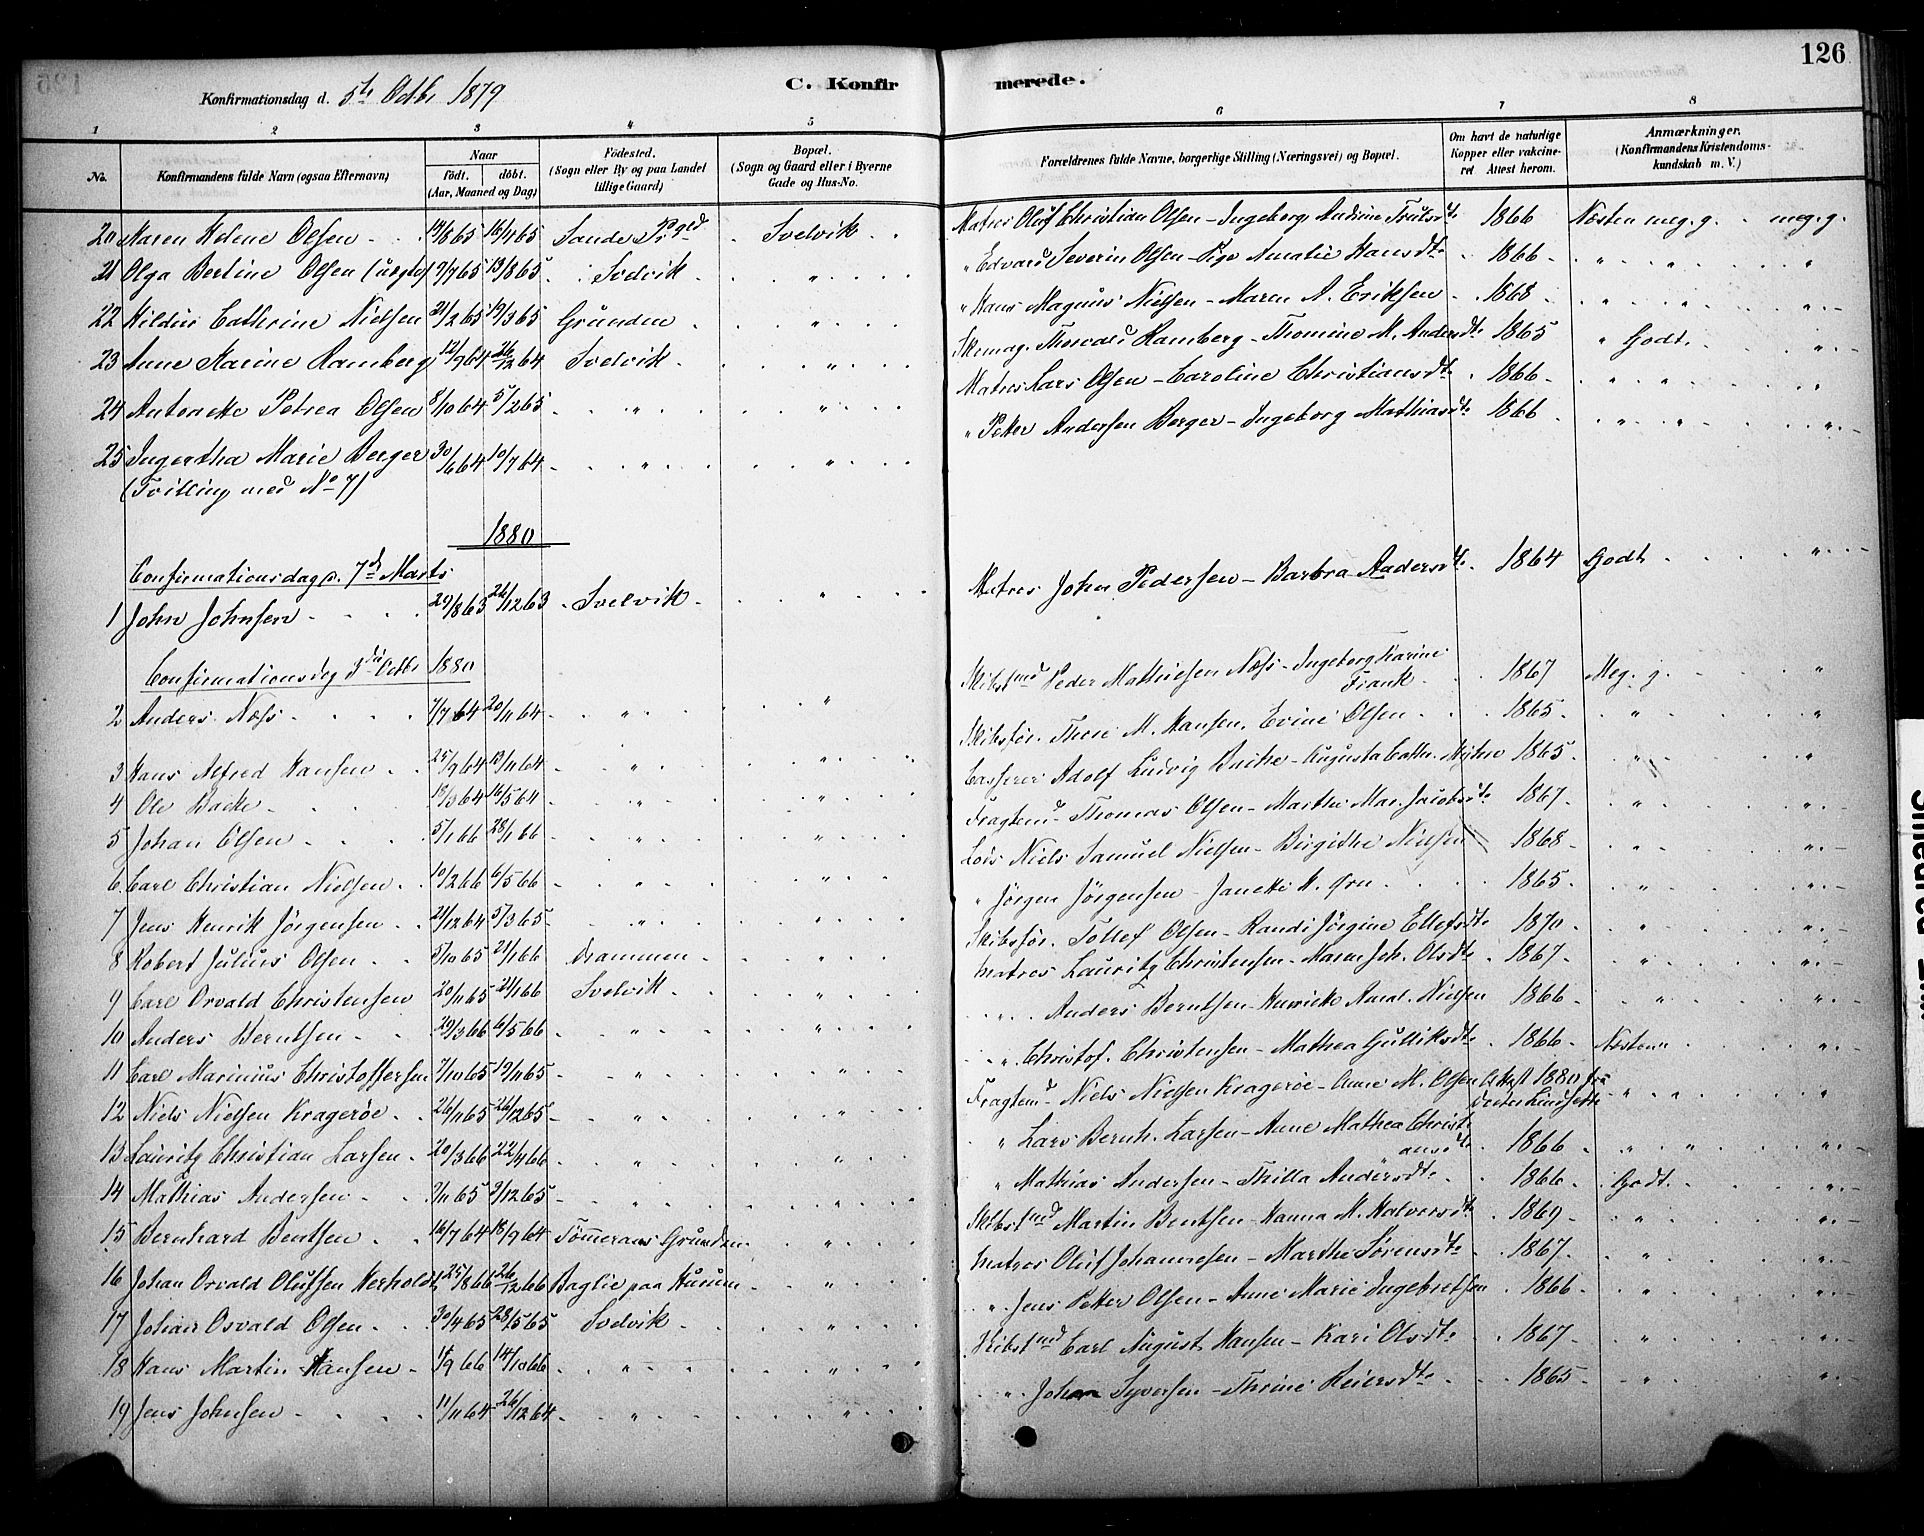 126
C. Konfirmerede.
Konfirmationsdag d. 5te Octbr 1879
1 2 3 4 5 6 7 8
No. Konfirmandens fulde Navn (ogsaa Efternavn) Naar født. døbt. (Aar, Maaned og Dag) Födested. (Sogn eller By og paa Landet tillige Gaard) Bopæl. (Sogn og Gaard eller i Byerne Gade og Hus-No. Forældrenes fulde Navne, borgerlige Stilling (Næringsvei) og Bopæl. Om havt de naturlige Kopper eller vakcineret Attest herom. Anmærkninger. (Konfirmandens Kristendomskundskab m. V.)
20 Maren Helene Olsen 14/8 65 16/4 65 Sande Pgld Svelvik Matros Oluf Christian Olsen - Ingeborg Andrine Trulsdt 1866 Næsten meg. g. meg. g.
21 Olga Bertine Olsen (uægte) 9/7 65 13/8 65 Svelvik " " Edvard Severin Olsen - Pige Amalie Hansdt 1866 " " "
22 Hildur Cathrine Nielsen 21/2 65 19/3 65 Grunden " " Hans Magnus Nielsen - Maren A. Eriksen 1868 " " "
23 Anne Marine Ramberg 12/9 64 26/12 64 Svelvik " Skomag. Thorvald Ramberg - Thomine M. Andersdt 1865 " Godt "
24 Antonette Petrea Olsen 8/10 64 5/2 65 " " Matros Lars Olsen - Caroline Christiansdt 1866 " " "
25 Ingertha Marie Berger 30/6 64 10/7 64 " " " Petter Andersen Berger - Ingeborg Mathiasdt 1866 " " "
(Tvilling med No 7)
1880
Confirmationsdag d. 7d Marts
1 John Johnsen 29/8 63 26/12 63 Svelvik " Matros John Pedersen - Barbra Andersdt 1864 Godt "
Confirmationsdag 3die Octbr 1880
2 Anders Næss 7/7 64 20/11 64 " " Skibstmd Peder Mathiesen Næss - Ingeborg Karine Frank 1867 Meg. g. "
3 Hans Alfred Hansen 25/9 64 13/11 64 " " Skibsfør. Thore M. Hansen, Evine Olsen 1865 " "
4 Ole Backe 18/3 64 16/5 64 " " Casserer Adolf Ludvig Backe - Augusta Cathr. Myhre 1865 " "
5 Johan Olsen 5/1 66 28/1 66 " " Fragtemd Thomas Olsen - Marthe Mar. Jacobsdt 1867 " "
6 Carl Christian Nielsen 10/2 66 6/5 66 " " Lods Niels Samuel Nielsen - Birgithe Nielsen 1868 " "
7 Jens Henrik Jörgensen 21/12 64 5/3 65 " " " Jörgen Jörgensen - Janette H. Ørn 1865 " "
8 Robert Julius Olsen 5/10 65 21/1 66 Drammen " Skibsfør. Tollef Olsen - Randi Jörgine Ellefsdt 1870 " "
9 Carl Osvald Christensen 20/11 65 21/1 66 Svelvik " Matros Lauritz Christensen - Maren Joh. Olsdt 1867 " "
10 Anders Berntsen 29/3 66 6/5 66 " " " Anders Berntsen - Henriette Amal. Nielsen 1866 " "
11 Carl Marinius Christoffersen 7/10 65 19/11 65 " " " Christof. Christensen - Mathea Gulliksdt 1866 Næsten "
12 Niels Nielsen Kragerøe 26/11 65 26/12 65 " " Fragtemd Niels Nielsen Kragerøe - Anne M. Olsen Attest 1880 fra " "
13 Lauritz Christian Larsen 20/3 66 22/4 66 " " " Lars Bernh. Larsen - Anne Mathea Christiansdt 1866 " " "
14 Mathias Andersen 2/11 65 3/12 65 " " " Mathias Andersen - Thilla Andersdt 1866 Godt "
15 Bernhard Bentsen 16/7 64 18/9 64 Tömmeraas Grunden " Skibstmd Martin Bentsen - Hanna M. Halvorsdt 1869 " "
16 Johan Osvald Olufsen Herholdt 25/8 66 26/12 66 Baglie paa Hurum " Matros Oluf Johannesen - Marthe Sörensdt 1867 " "
17 Johan Osvald Olsen 30/4 65 28/5 65 Svelvik " " Jens Petter Olsen - Anne Marie Ingebretsen 1866 " "
18 Hans Martin Hansen 11/9 66 14/10 66 " " Skibstmd Carl August Hansen - Kari Olsdt 1867 " "
19 Jens Johnsen 11/11 64 26/12 64 " " " Johan Syversen - Thrine Reiersdt 1865 " "